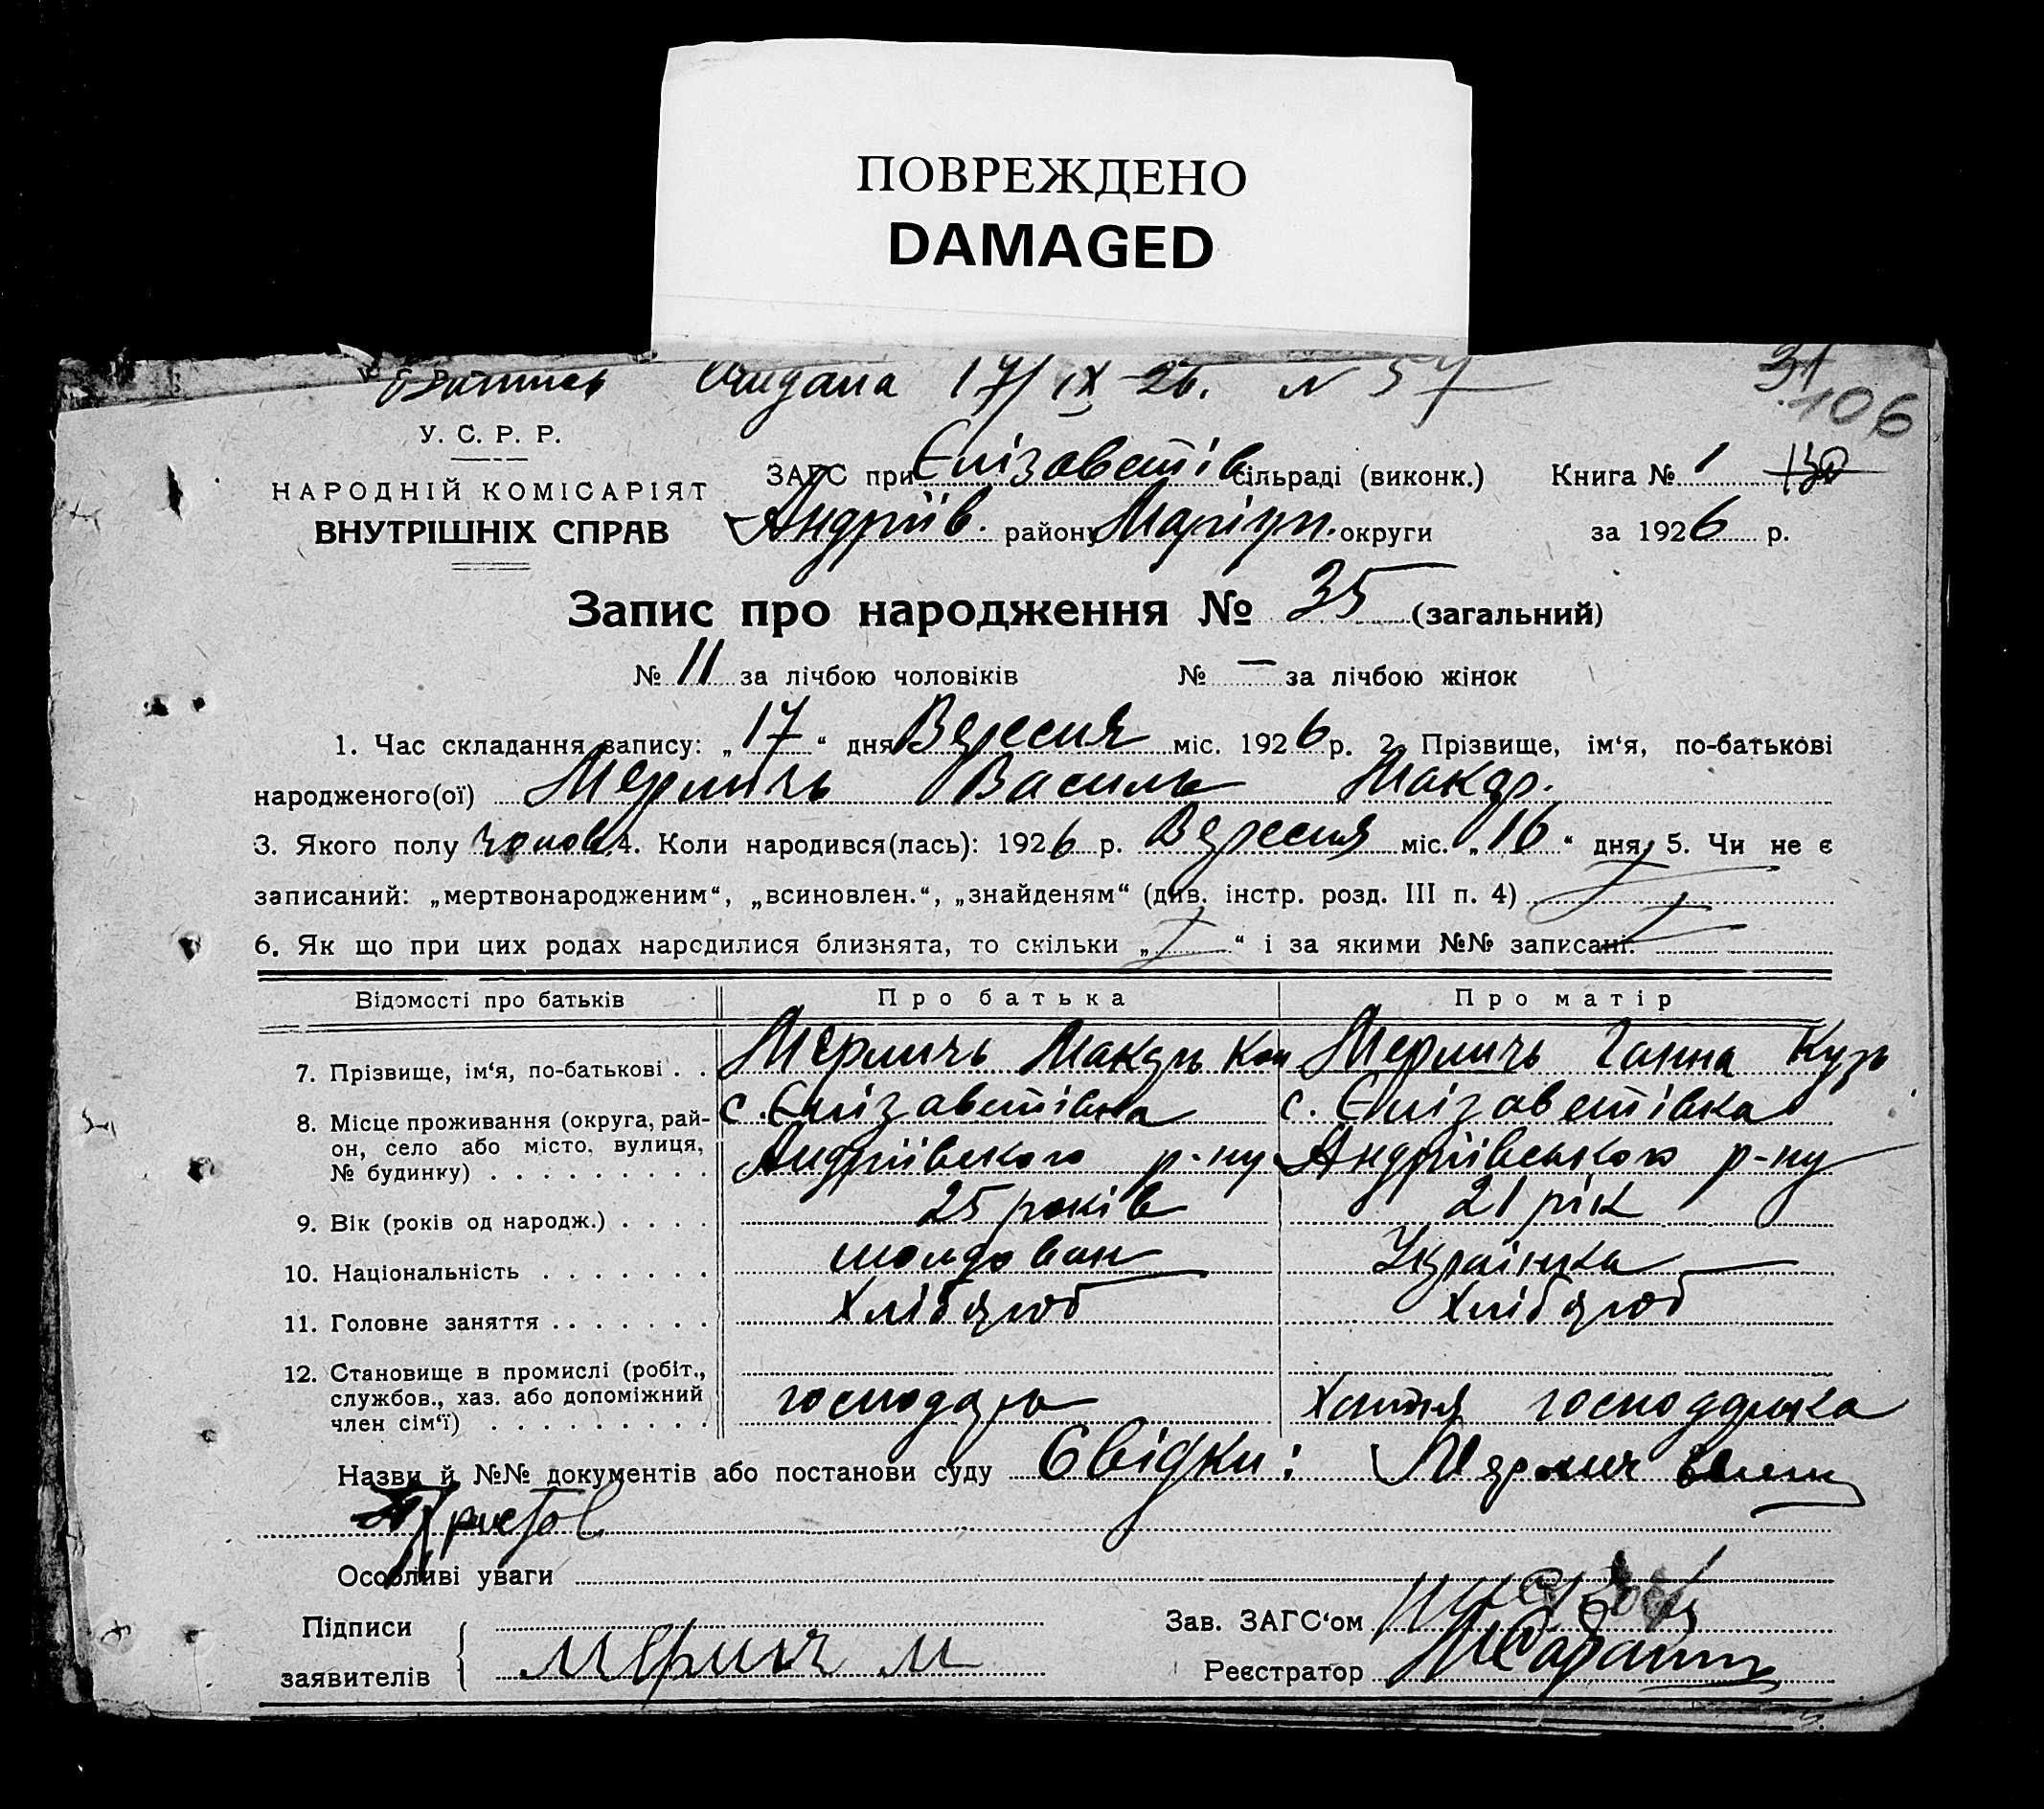 ПОВРЕЖДЕНО
DAMAGED
Витпис Видана 17/IX-26. N 57
31
106
У. С. Р. Р.
НАРОДНІЙ КОМІСАРІЯТ
ВНУТРІШНІХ СПРАВ
ЗАГС при Єлізаветів сільраді (виконк.)
Андріїв. району Маріуп. округи
Книга № 1 130
за 1926 р.
Запис про народження № 35 (загальний)
№ 11 за лічбою чоловіків № — за лічбою жінок
1. Час складання запису: „17“ дня Вересня міс. 1926 р. 2. Прізвище, ім‘я, по-батькові
народженого(ої) Мерличь Василь Макар.
3. Якого полу чолов. 4. Коли народився(лась): 1926 р. Вересня міс. „16“ дня, 5. Чи не є
записаний: „мертвонародженим“, „всиновлен.“, „знайденям“ (див. інстр. розд. III п. 4)
6. Як що при цих родах народилися близнята, то скільки „ “ і за якими №№ записані:
Відомості про батьків Про батька Про матір
7. Прізвище, ім‘я, по-батькові . . Мерличь Макарь Кон Мерличь Ганна Кузь
8. Місце проживання (округа, рай- с. Єлізаветівка с. Єлізаветівка
он, село або місто, вулиця,
№ будинку) . . . . . . . . . Андріївского р-ну Андріївського р-ну
9. Вік (років од народж.) . . . . 25 років 21 рік
10. Національність . . . . . . . молдован Українка
11. Головне заняття . . . . . . . Хлібороб Хлібороб
12. Становище в промислі (робіт.,
службов., хаз. або допоміжний
член сім‘ї) . . . . . . . . . господарь Хатня господарка
Назви й №№ документів або постанови суду Свідки: Мерлич
Христов
Особливі уваги
Підписи
заявителів
Мерлич М
Зав. ЗАГС‘ом
Реєстратор